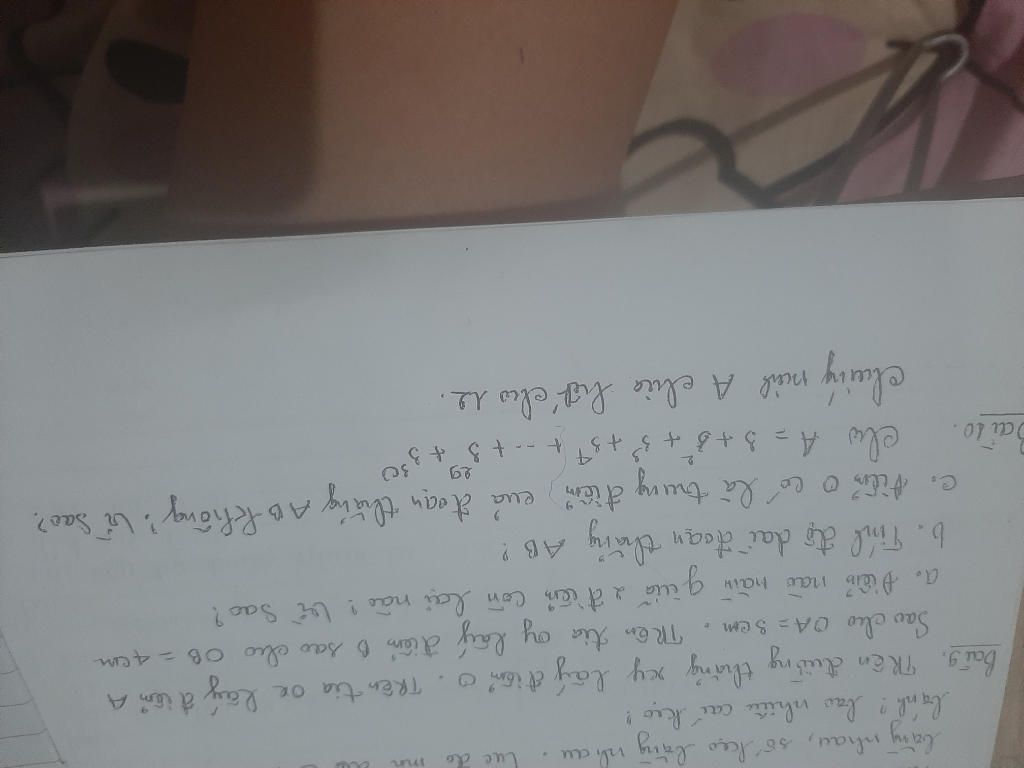 bằng nhau, số kẹo bằng nhau. Lúc đó mỗi
bánh? bao nhiêu cái kẹo?
Bài 9. Trên đường thẳng xy lấy điểm O. Trên tia Ox lấy điểm A
Sao cho OA = 3cm. Trên tia Oy lấy điểm B sao cho OB = 4cm
a. Điểm nào nằm giữa 2 điểm còn lại nào? Vì Sao?
b. Tính độ dài đoạn thẳng AB?
c. Điểm O có là trung điểm của đoạn thẳng AB không? Vì Sao?
Bài 10. Cho A = 3 + 3² + 3³ + 3⁴ + --- + 3²⁹ + 3³⁰
Chứng minh A chia hết cho 12.